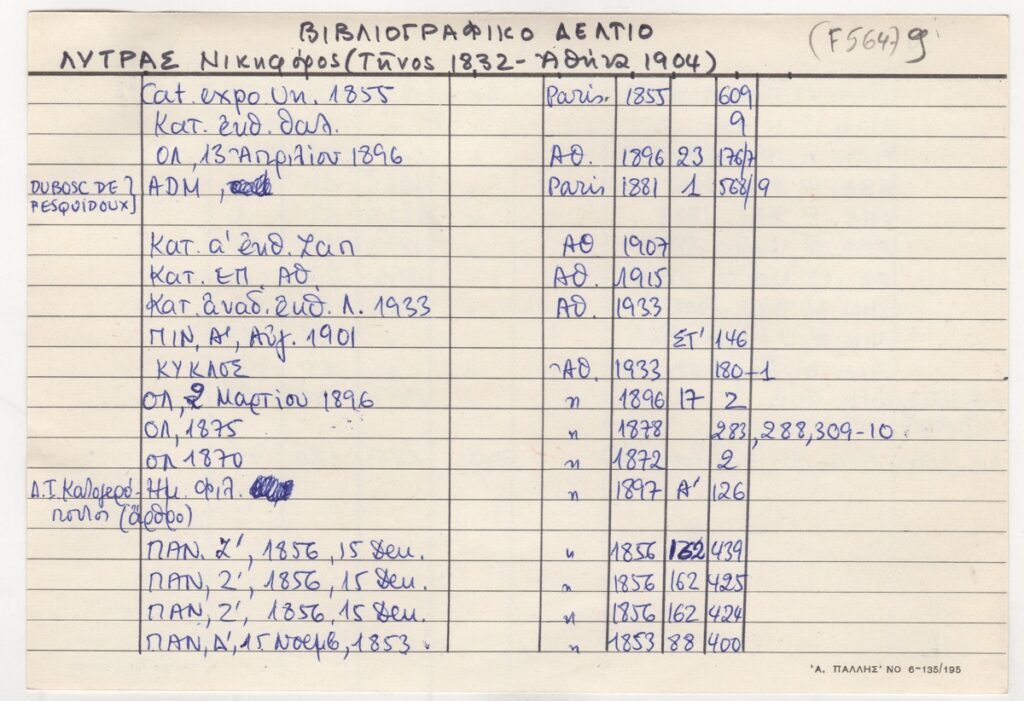 ΒΙΒΛΙΟΓΡΑΦΙΚΟ ΔΕΛΤΙΟ
(F5647) 9
ΛΥΤΡΑΣ Νικηφόρος (Τῆνος 1832 - Ἀθήνα 1904)
Cat. expo Un. 1855 Paris. 1855 609
Κατ. ἐκθ. θαλ. 9
ΟΛ, 13 Ἀπριλίου 1896 Ἀθ. 1896 23 176/7
DUBOSC DE PESQUIDOUX] ADM, Paris 1881 1 568/9
Κατ. α' ἐκθ. Ζαπ Ἀθ 1907
Κατ. ΕΠ. Ἀθ. Ἀθ. 1915
Κατ. ἀναδ. ἐκθ. Λ. 1933 Ἀθ. 1933
ΠΙΝ, Α', Αὔγ. 1901 ΣΤ' 146
ΚΥΚΛΟΣ Ἀθ. 1933 180-1
ΟΛ, 2 Μαρτίου 1896 " 1896 17 2
ΟΛ, 1875 " 1878 283, 288, 309-10
ΟΛ 1870 " 1872 2
Δ.Ι. Καλογερό- Ἡμ. Φιλ. " 1897 Α' 126
πουλος (ἄρθρο)
ΠΑΝ. Ζ', 1856, 15 Δεκ. " 1856 162 439
ΠΑΝ, Ζ', 1856, 15 Δεκ. " 1856 162 425
ΠΑΝ, Ζ', 1856, 15 Δεκ. " 1856 162 424
ΠΑΝ, Δ', 15 Νοεμβ, 1853. " 1853 88 400
'Α. ΠΑΛΛΗΣ' ΝΟ 6-135/195